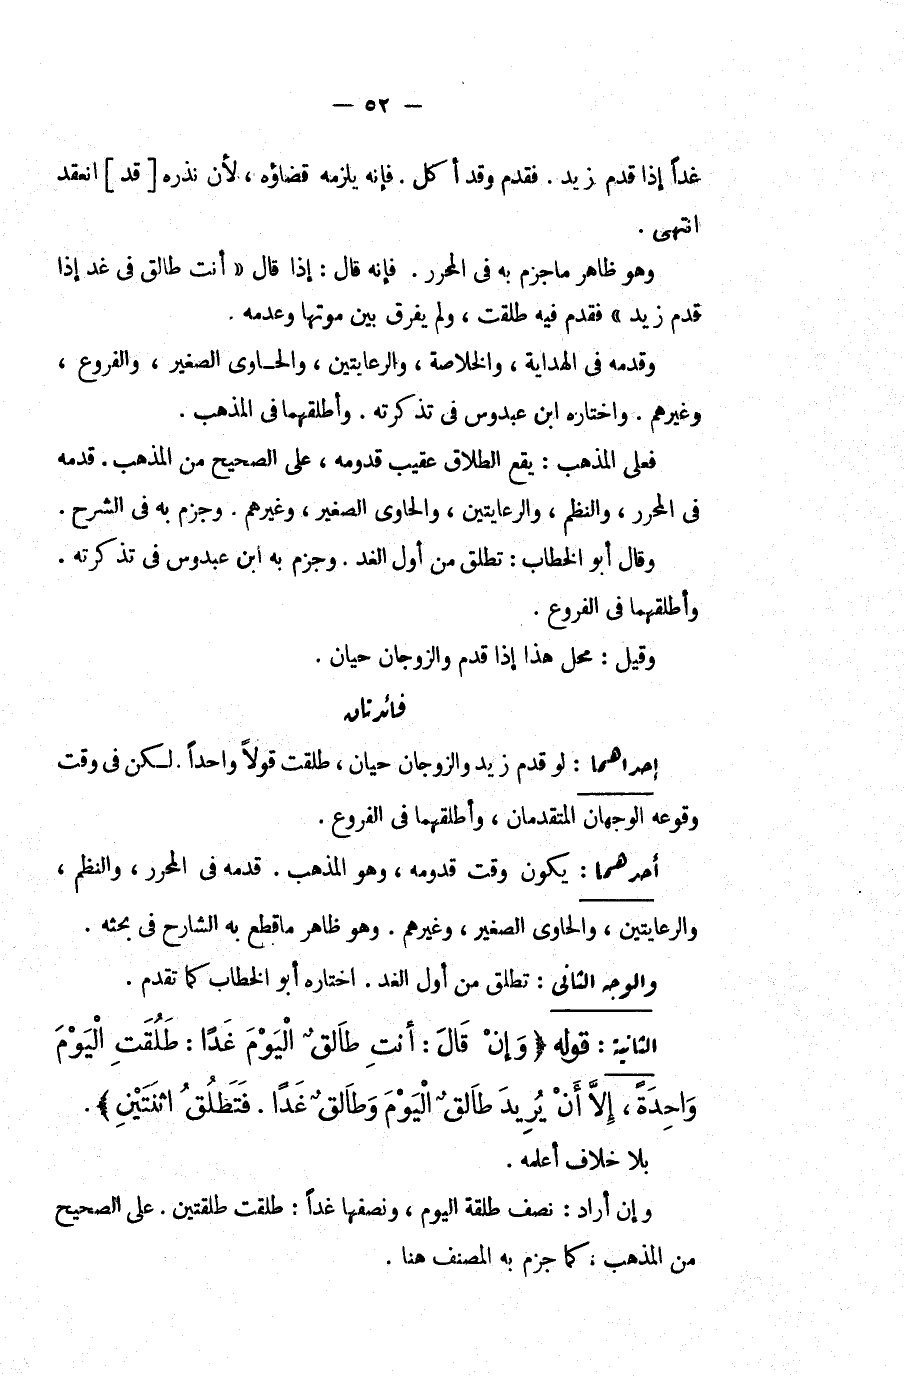 — ٥٢ —
غداً إذا قدم زيد . فقدم وقد أكل . فإنه يلزمه قضاؤه ، لأن نذره [ قد ] انعقد
انتهى .
وهو ظاهر ماجزم به فى المحرر . فإنه قال : إذا قال « أنت طالق فى غد إذا
قدم زيد » فقدم فيه طلقت ، ولم يفرق بين موتها وعدمه .
وقدمه فى الهداية ، والخلاصة ، والرعايتين ، والحـاوى الصغير ، والفروع ،
وغيرهم . واختاره ابن عبدوس فى تذكرته . وأطلقهما فى المذهب .
فعلى المذهب : يقع الطلاق عقيب قدومه ، على الصحيح من المذهب . قدمه
فى المحرر ، والنظم ، والرعايتين ، والحاوى الصغير ، وغيرهم . وجزم به فى الشرح .
وقال أبو الخطاب : تطلق من أول الغد . وجزم به ابن عبدوس فى تذكرته .
وأطلقهما فى الفروع .
وقيل : محل هذا إذا قدم والزوجان حيان .
فائدتان
إحداهما : لو قدم زيد والزوجان حيان ، طلقت قولاً واحداً . لـكن فى وقت
وقوعه الوجهان المتقدمان ، وأطلقهما فى الفروع .
أحدهما : يكون وقت قدومه ، وهو المذهب . قدمه فى المحرر ، والنظم ،
والرعايتين ، والحاوى الصغير ، وغيرهم . وهو ظاهر ماقطع به الشارح فى بحثه .
والوجه الثانى : تطلق من أول الغد . اختاره أبو الخطاب كما تقدم .
الثانية : قوله ﴿ وَإِنْ قَالَ : أَنتِ طَالِقٌ الْيَوْمَ غَدًا : طَلُقَتِ الْيَوْمَ
وَاحِدَةً ، إِلاَّ أَنْ يُرِيدَ طَالِقٌ الْيَوْمَ وَطَالِقٌ غَدًا . فَتَطْلُقُ اثْنَتَيْنِ ﴾ .
بلا خلاف أعلمه .
وإن أراد : نصف طلقة اليوم ، ونصفها غداً : طلقت طلقتين . على الصحيح
من المذهب ، كما جزم به المصنف هنا .